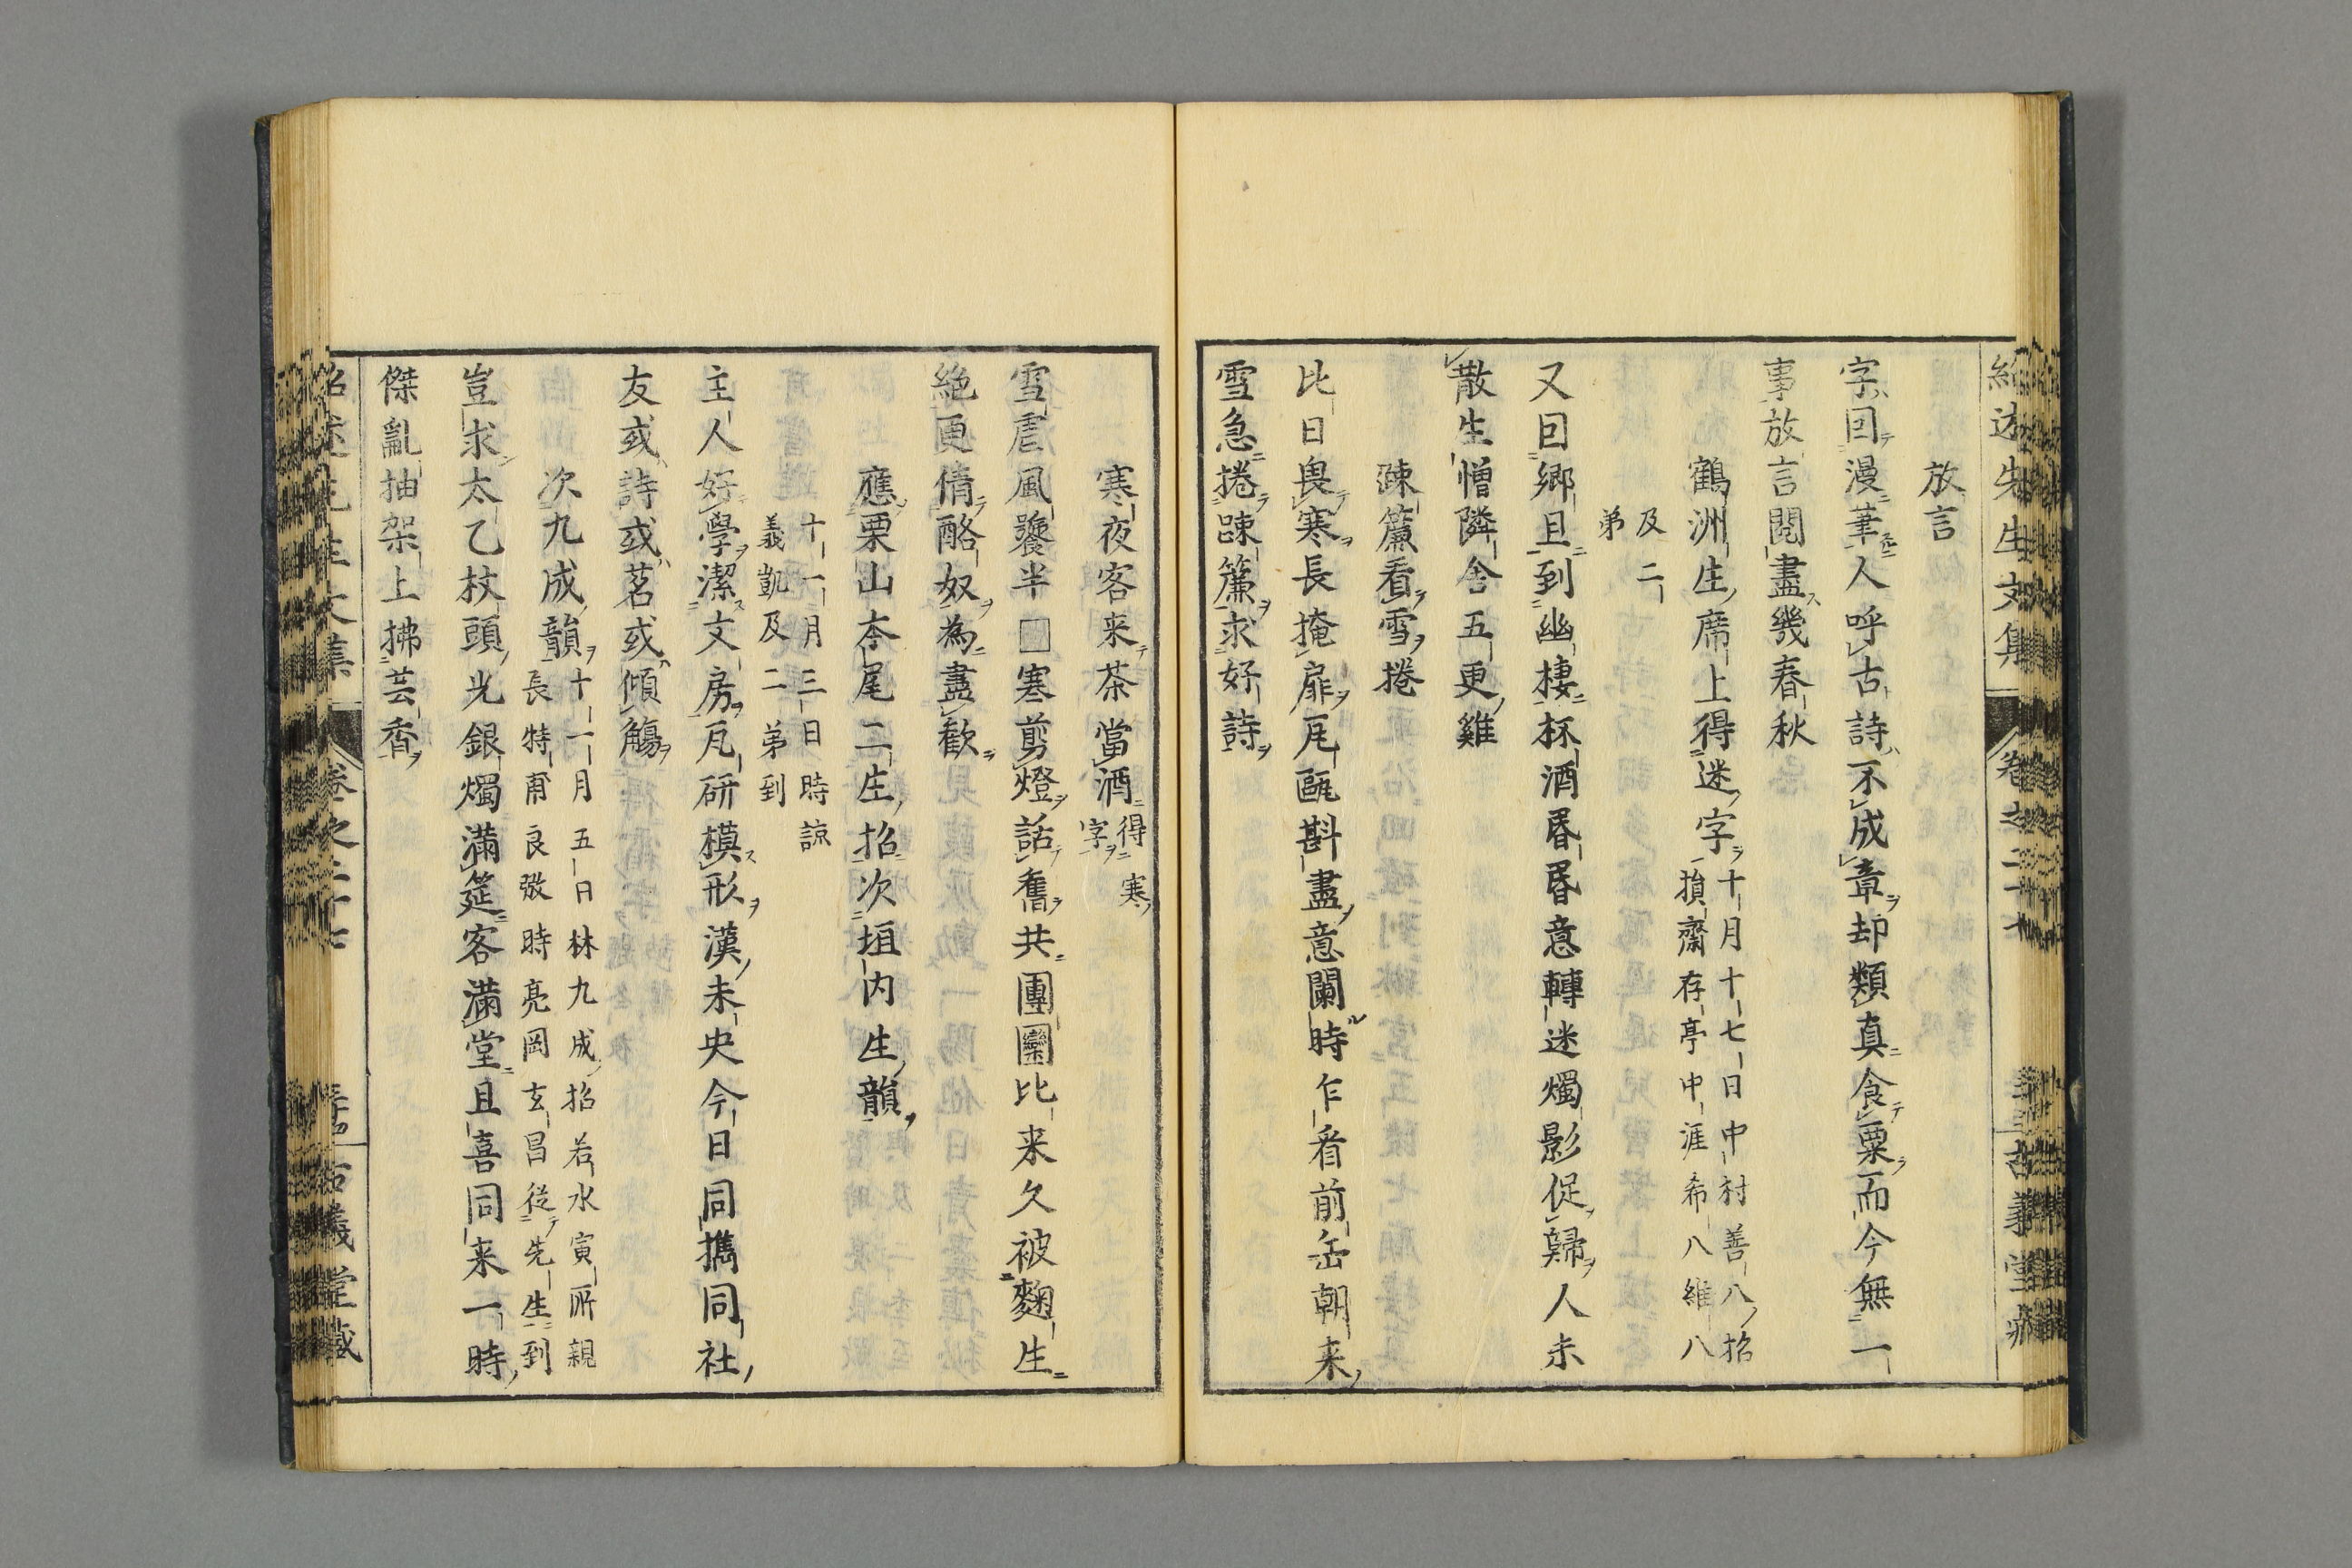 放言
字回漫筆人呼古詩不成章却類真食粟而今無一
事放言閱盡幾春秋
鶴洲生席上得迷字十月十七日中村善八招
損齋存亭中涯希八維八
及二
弟
又回鄉且到幽棲杯酒昏昏意轉迷燭影促歸人未
散生憎隣舎五更雞
疎簾看雪捲
比日畏寒長掩扉瓦甌斟盡意闌時乍看前缶朝来
雪急捲疎簾求好詩
寒夜客来茶當酒得寒
字
雪虐風饕半□寒剪燈話舊共團圞比来久被麴生
絶更倩酪奴為盡歡
應栗山夲尾二生招次垣内生韻
十一月三日時諒
義凱及二弟到
主人好學潔文房凡研模形漢未央今日同携同社
友或詩或茗或傾觴
次九成韻十一月五日林九成招若水寅所親
長特甫良弢時亮岡玄昌従先生到
豈求太乙杖頭光銀燭滿筵客滿堂且喜同来一時
傑亂抽架上拂芸香